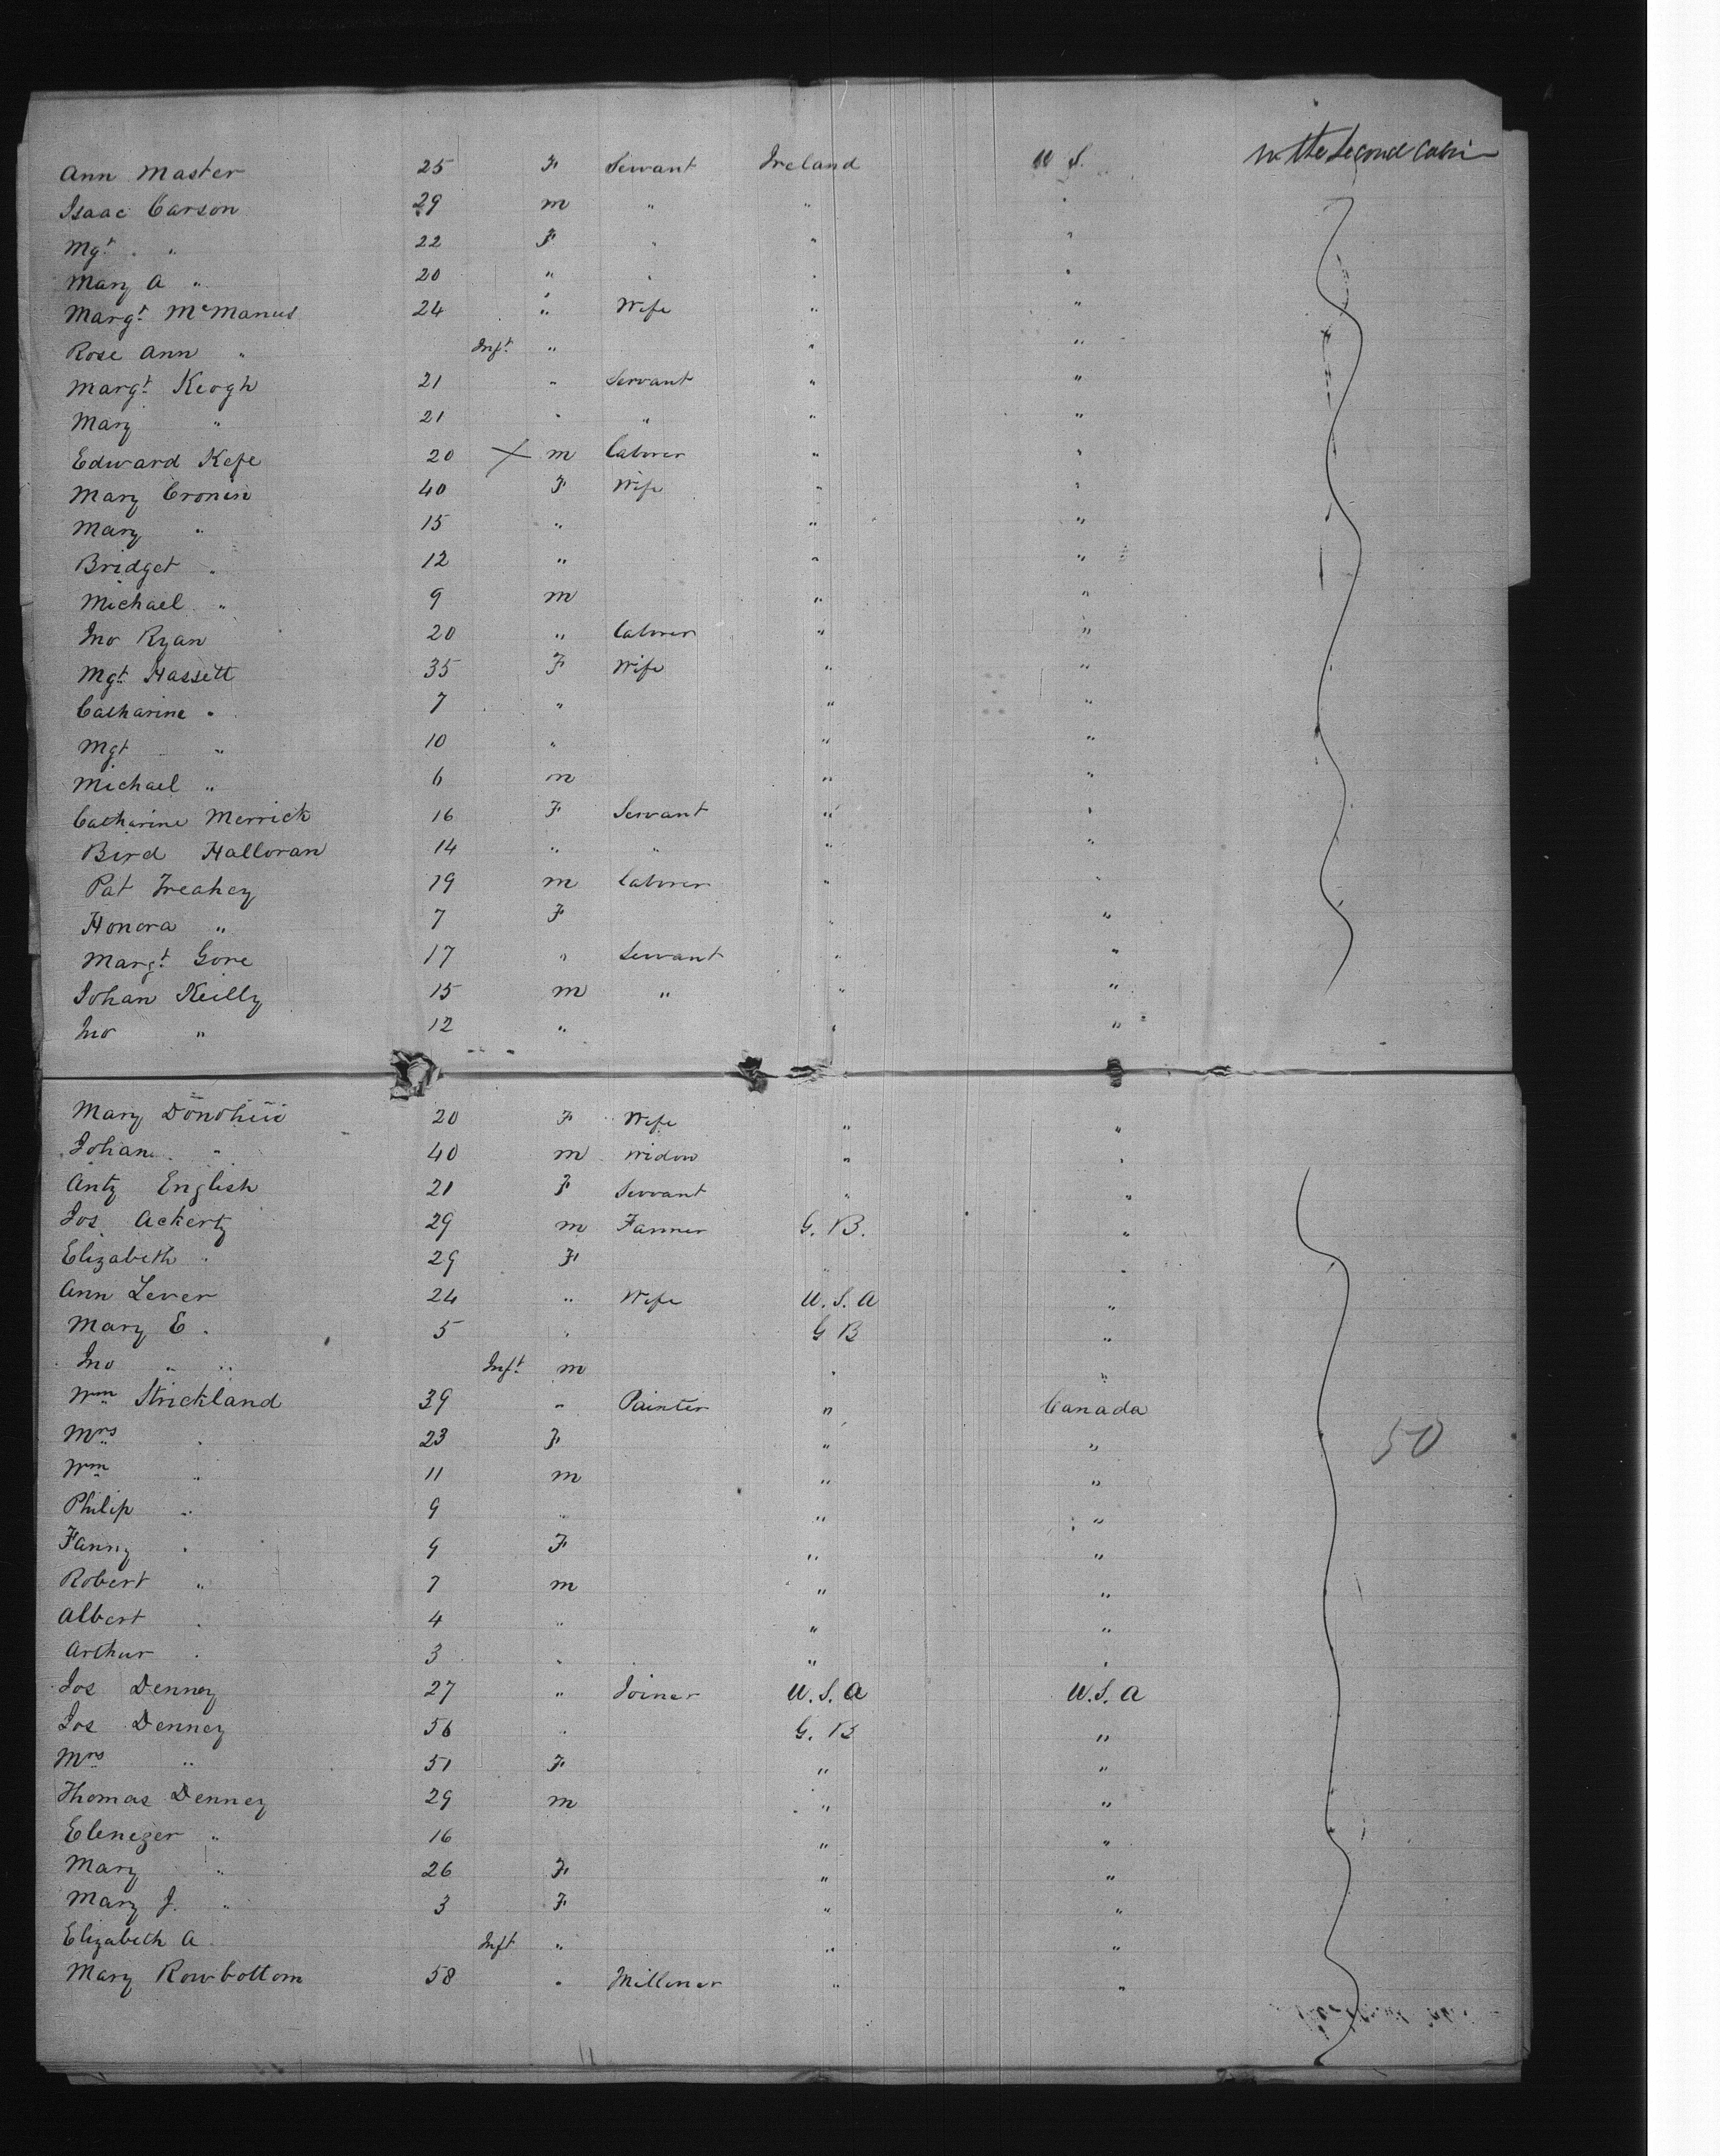 Ann Master 25 F Servant Ireland U S. in the Second Cabin
Isaac Carson 29 m " " "
Mgt. " 22 F " " "
Mary A " 20 " " " "
Margt. McManus 24 " Wife " "
Rose Ann " Inft. " " "
Margt. Keogh 21 " Servant " "
Mary " 21 " " " "
Edward Kefe 20 X m Laborer " "
Mary Cronin 40 F Wife " "
Mary " 15 " " "
Bridget " 12 " " "
Michael " 9 m " "
Jno Ryan 20 " Laborer " "
Mgt. Hassett 35 F Wife " "
Catharine " 7 " " "
Mgt " 10 " " "
Michael " 6 m " "
Catharine Merrick 16 F Servant " "
Bird Halloran 14 " " " "
Pat Treahey 19 m Laborer " "
Honora " 7 F " "
Margt. Gore 17 " Servant " "
Johan Keilly 15 m " " "
Jno " 12 " " "
Mary Donohue 20 F Wife " "
Johan " 40 m Widow " "
Anty English 21 F Servant " "
Jos. Ackerty 29 m Farmer G. B. "
Elizabeth " 29 F " "
Ann Lever 24 " Wife U. S. A "
Mary E " 5 " G B "
Jno " " Inft. m " "
Wm Strickland 39 " Painter " Canada
Mrs " 23 F " " 50
Wm " 11 m " "
Philip " 9 " " "
Fanny " 9 F " "
Robert " 7 m " "
Albert " 4 " " "
Arthur " 3 " " "
Jos Denney 27 " Joiner U. S. A U. S. A
Jos Denney 56 " G. B "
Mrs " 51 F " "
Thomas Denney 29 m " "
Ebenezer " 16 " "
Mary " 26 F " "
Mary J. " 3 F " "
Elizabeth A Inft " " "
Mary Rowbottom 58 " Milliner " "